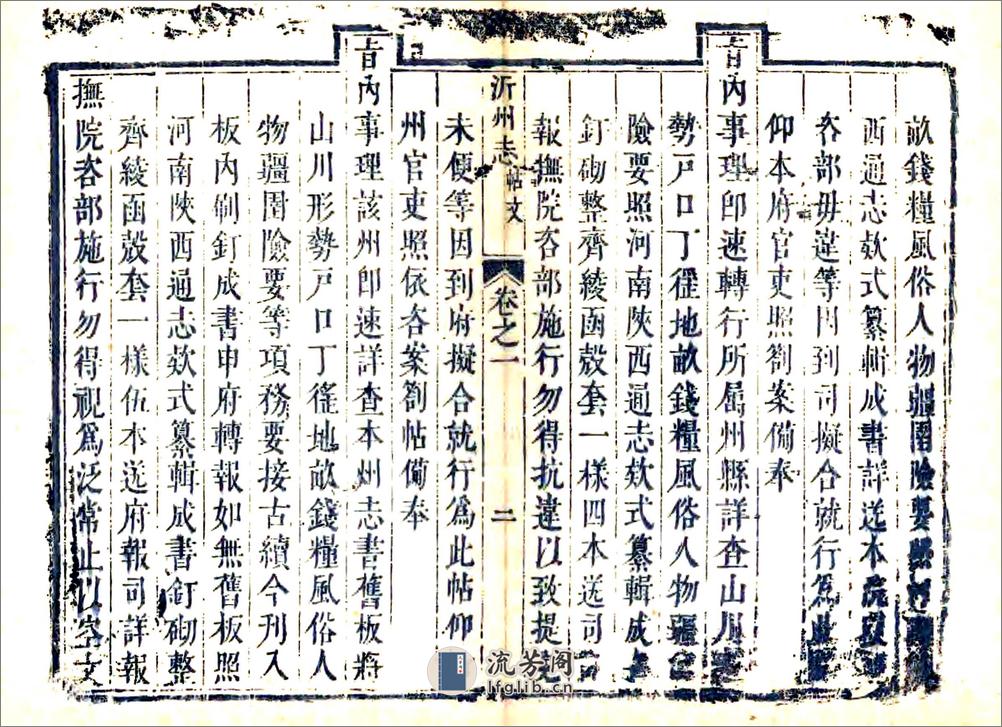 畝錢糧風俗人物疆圉險要照河南陝
西通志欵式纂輯成書詳送本院以
咨部毋違等因到司擬合就行爲此
仰本府官吏照劄案備奉
旨內事理卽速轉行所属州縣詳查山川形
勢戸口丁徭地畝錢糧風俗人物疆圉
險要照河南陝西通志欵式纂輯成書
釘砌整齊綾函殼套一樣四本送司
報撫院咨部施行勿得抗違以致提究
沂州志 帖文 卷之一 二
未便等因到府擬合就行爲此帖仰
州官吏照依咨案劄帖備奉
旨內事理該州卽速詳查本州志書舊板將
山川形勢戸口丁徭地畝錢糧風俗人
物疆圉險要等項務要接古續今刊入
板內刷釘成書申府轉報如無舊板照
河南陝西通志欵式纂輯成書釘砌整
齊綾函殼套一樣伍本送府報司詳報
撫院咨部施行勿得視爲泛常止以空文
流芳阁
lfglib.cn